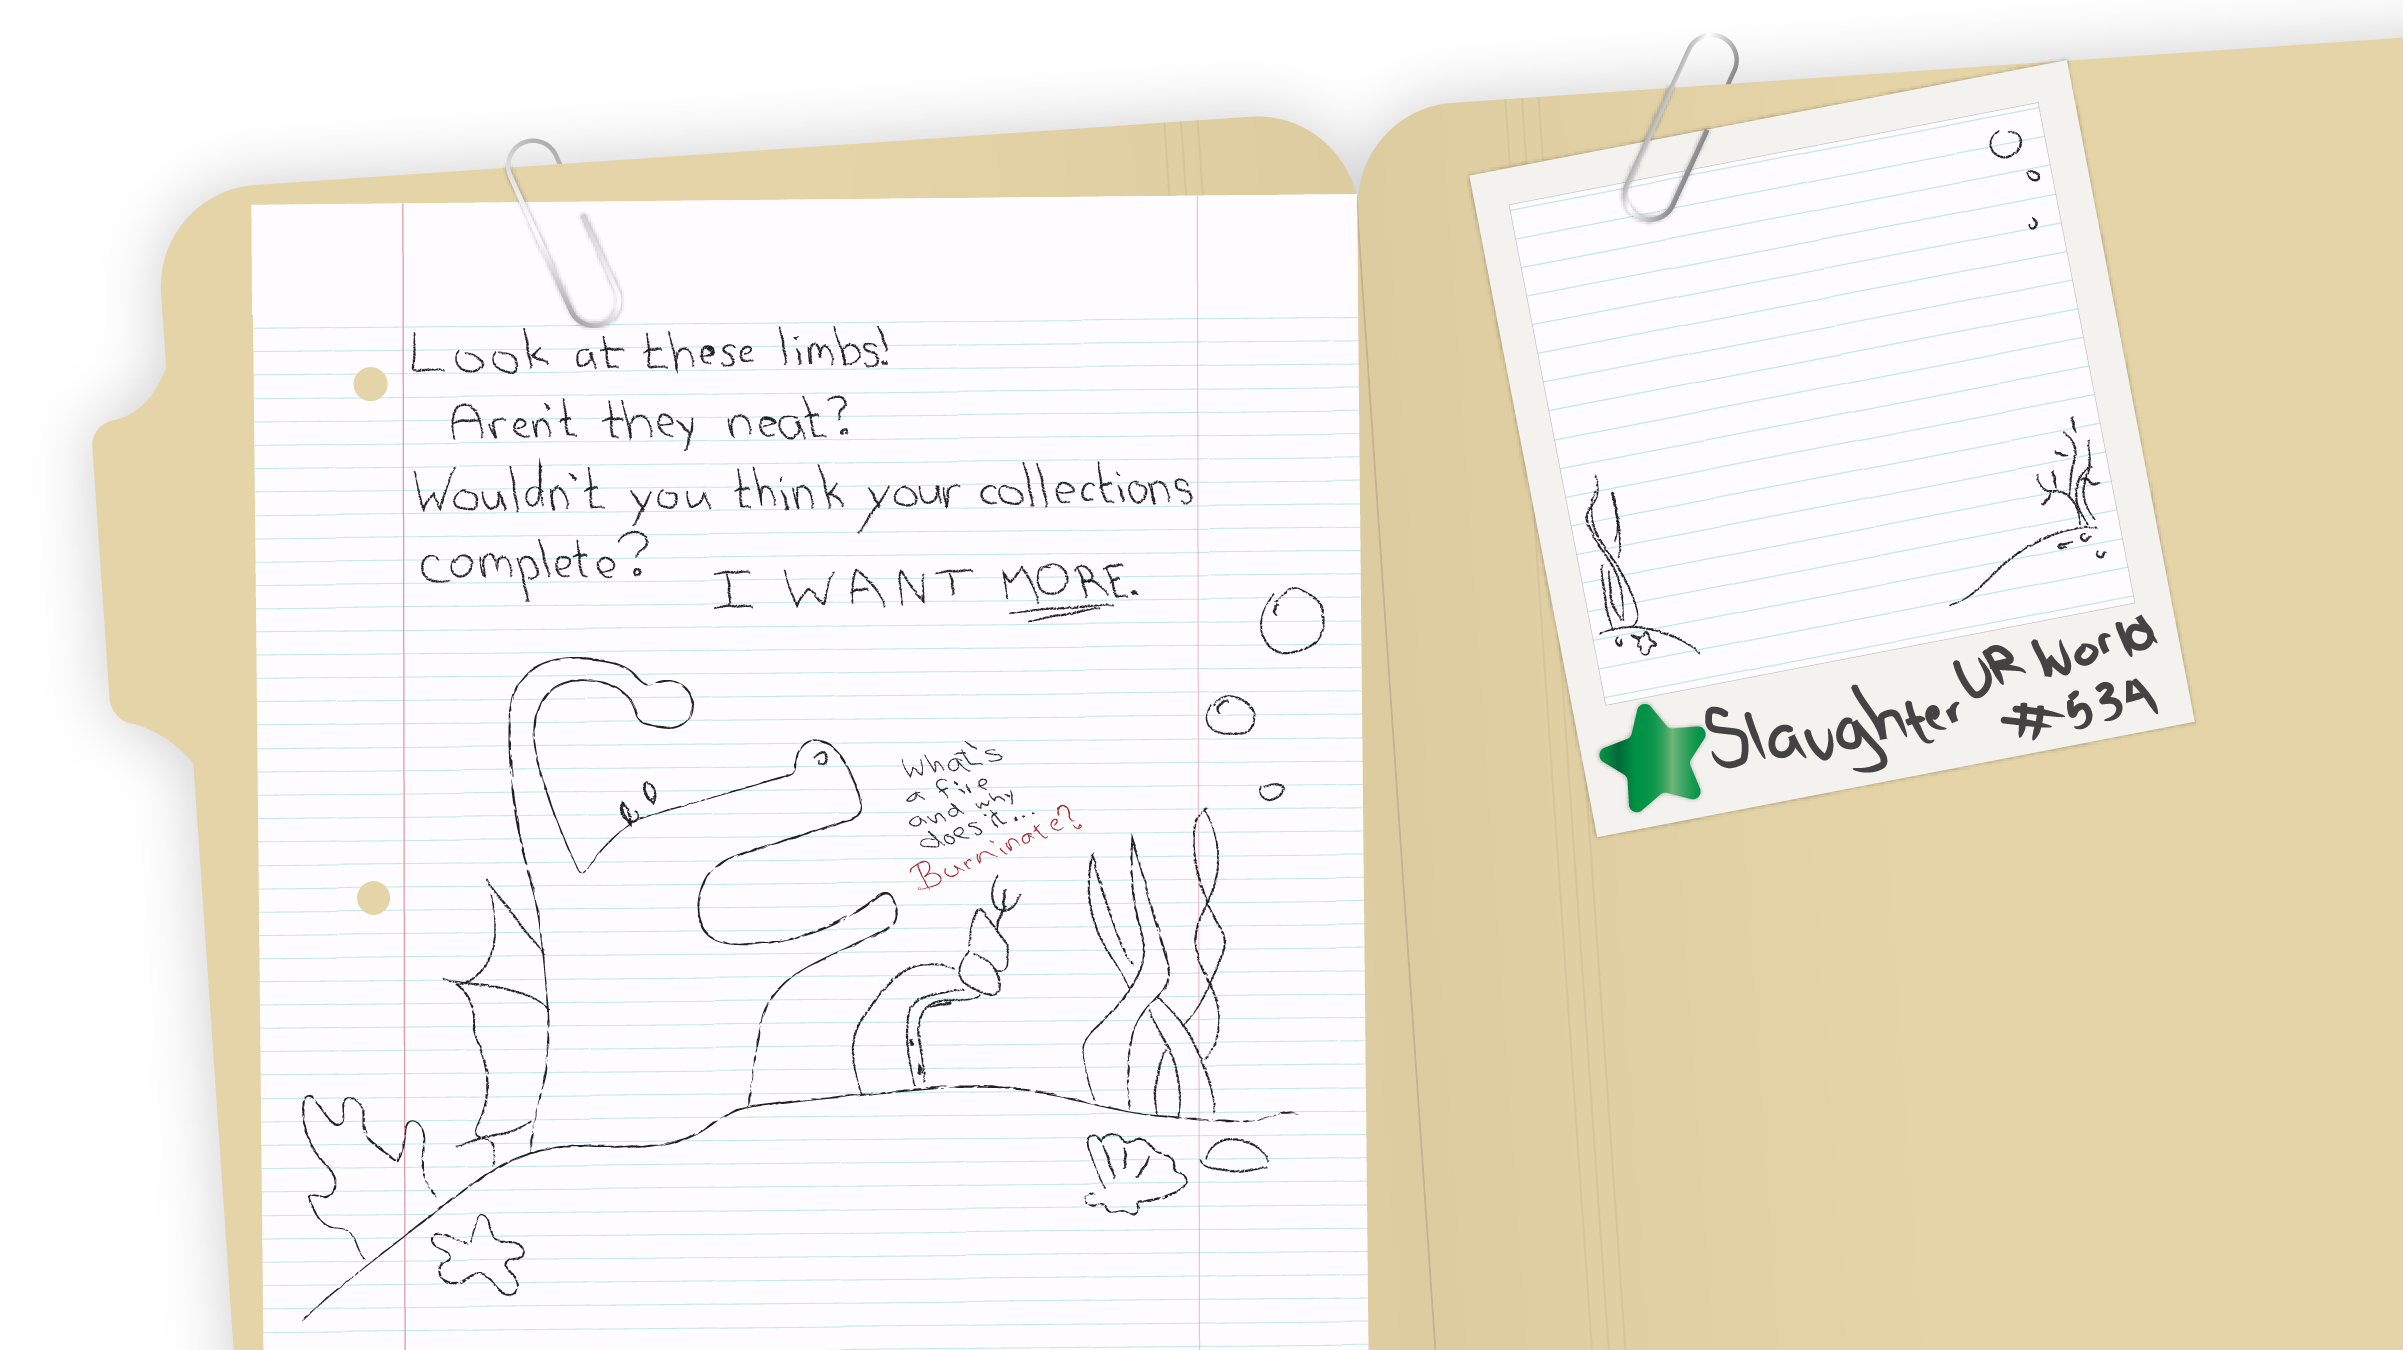 Look at these limbs!
Aren't they neat?
Wouldn't you think your collections
complete?
I WANT MORE.
What's
a fire
and why
does it...
Burninate?
Slaughter UR World
#534